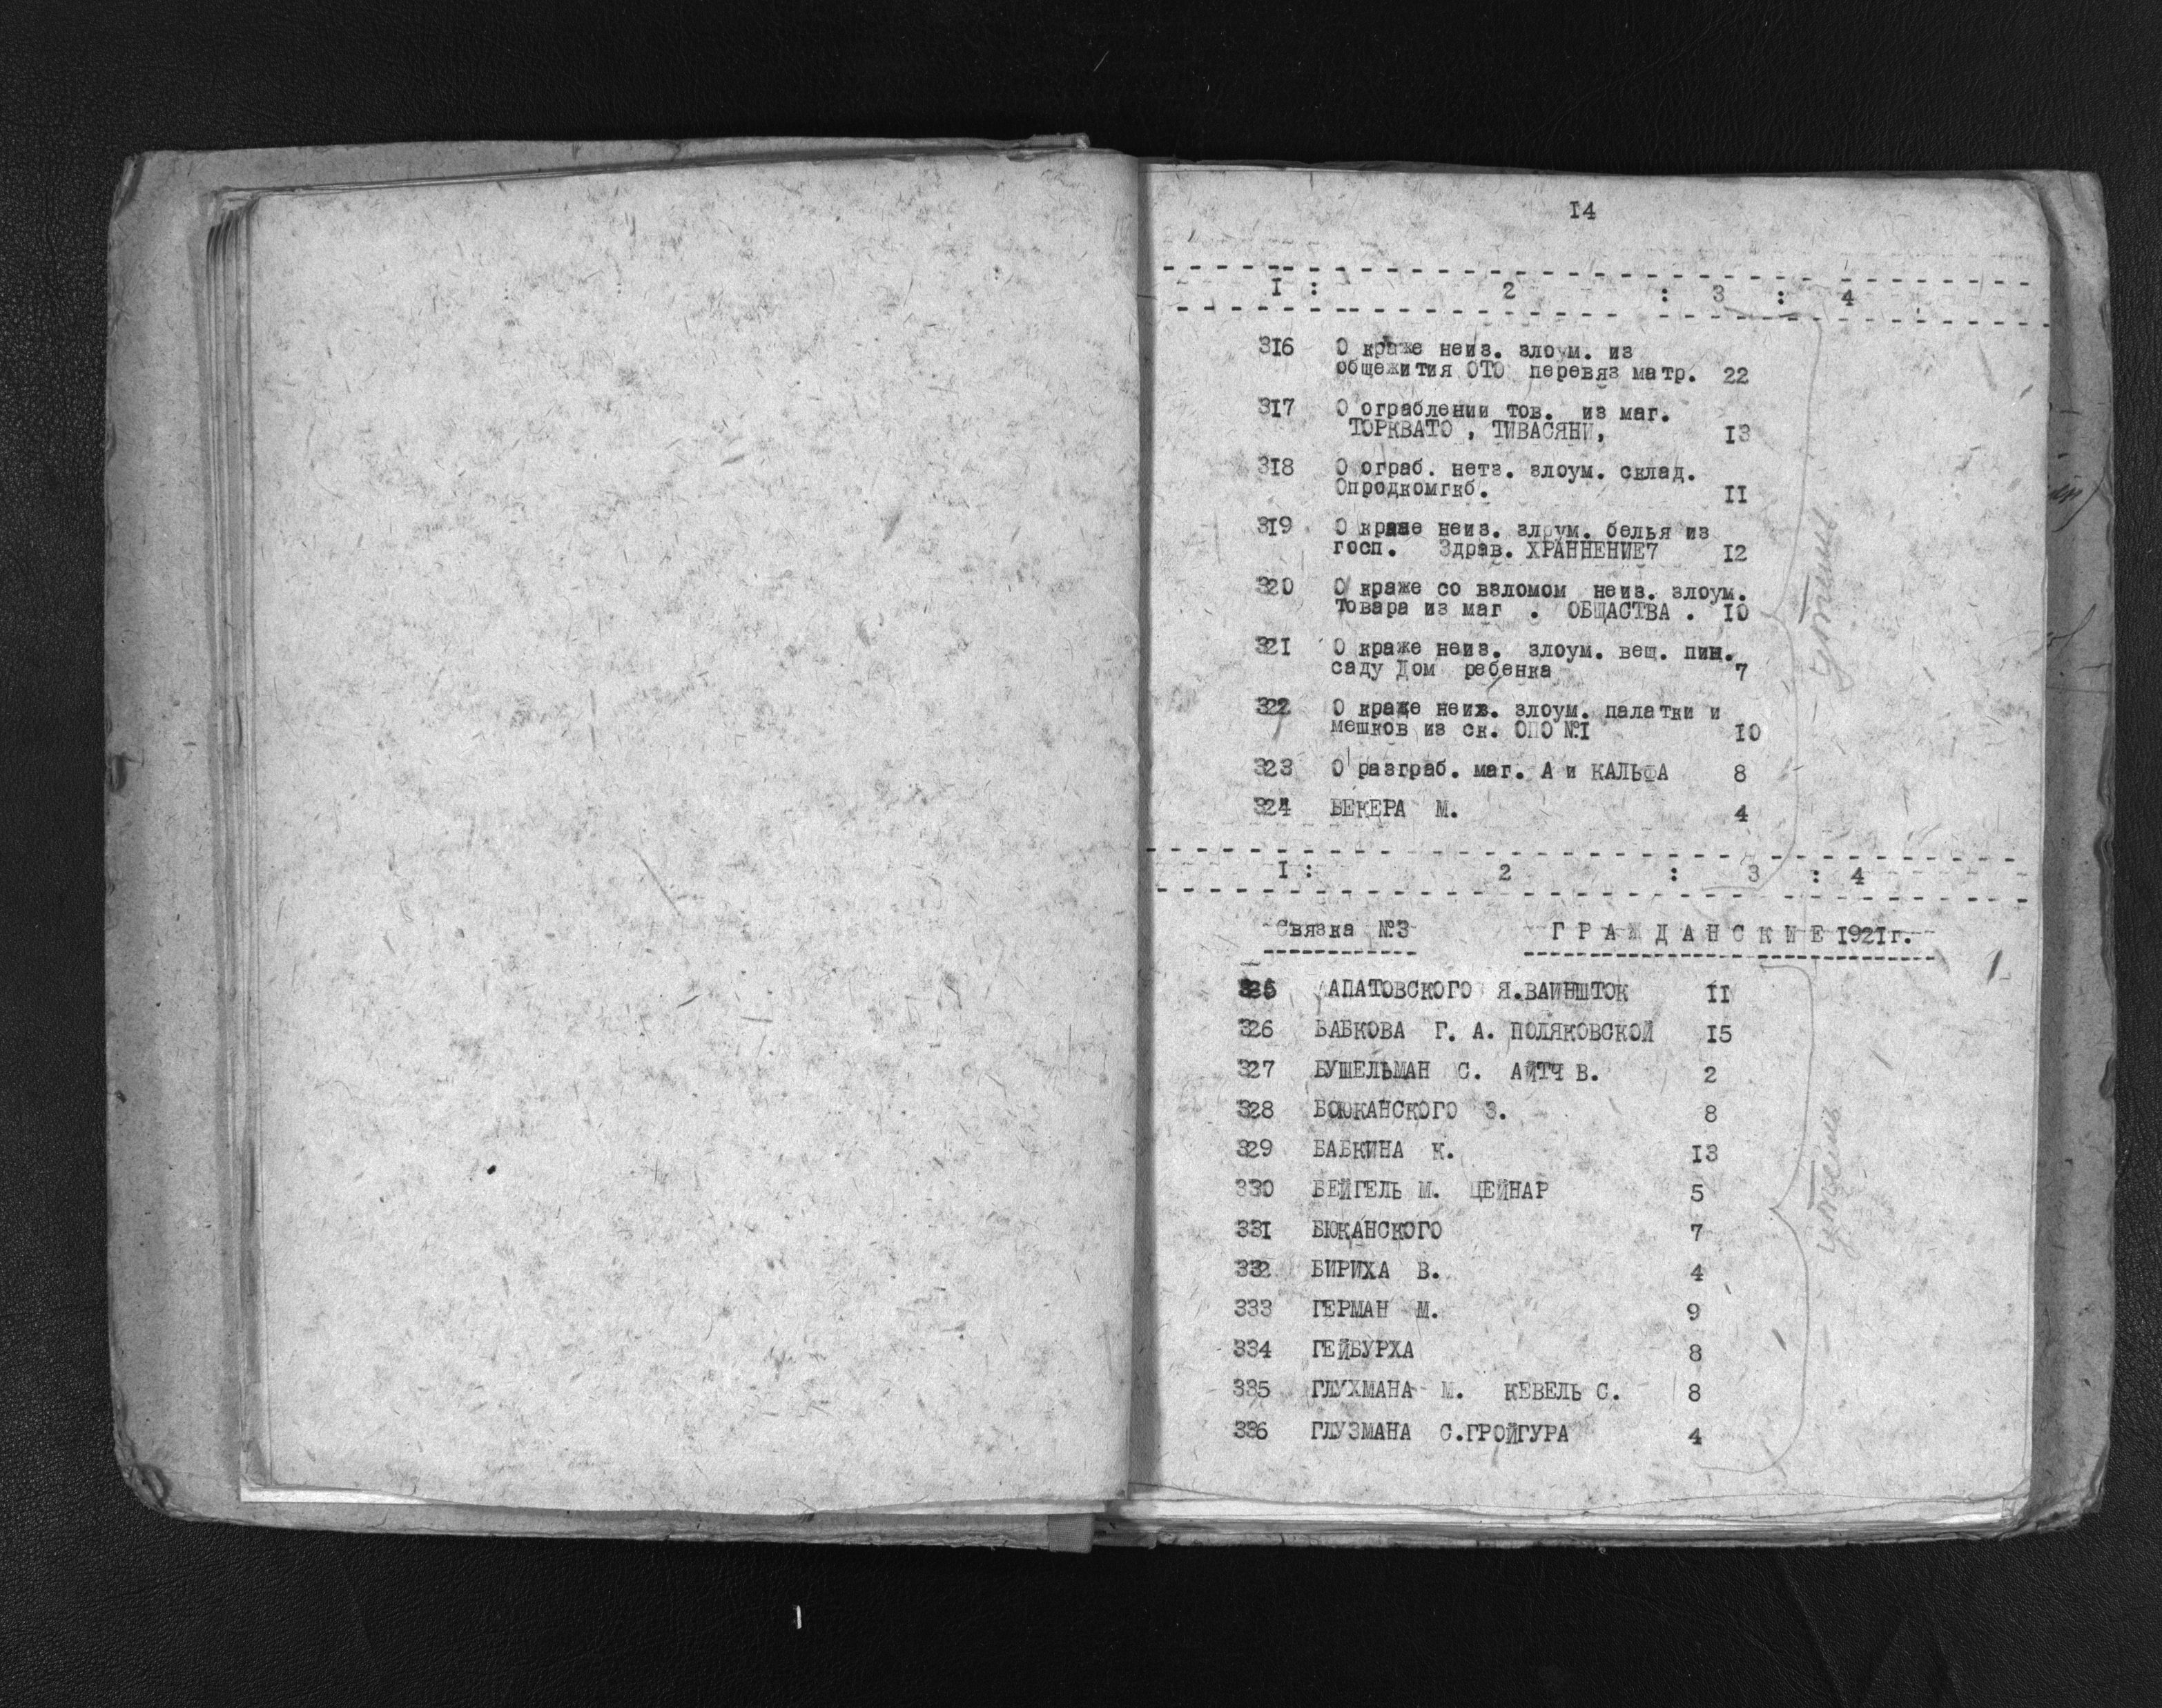 I4
I : 2 : 3 : 4
316 О краже неиз. злоум. из
общежития ОТО перевяз матр. 22
317 О ограблении тов. из маг.
ТОРКВАТО , ТИВАСЯНИ, I3
318 О ограб. нетз. злоум. склад.
Опродкомгкб. II
319 О краже неиз. злоум. белья из
госп. Здрав. ХРАННЕНИЕ7 I2
320 О краже со взломом неиз. злоум.
товара из маг . ОБЩАСТВА . IO
321 О краже неиз. злоум. вещ. пин.
саду Дом ребенка 7
322 О краже неиз. злоум. палатки и
мешков из ск. ОПО №I IO
323 О разграб. маг. А и КАЛЬФА 8
324 БЕКЕРА М. 4
утиль
I : 2 : 3 : 4
Связка №3 ГРАЖДАНСКИЕ I92Iг.
325 АПАТОВСКОГО Я.ВАИНШТОК II
326 БАБКОВА Г. А. ПОЛЯКОВСКОЙ I5
327 БУШЕЛЬМАН С. АЙТЧ В. 2
328 БОЮКАНСКОГО З. 8
329 БАБКИНА К. I3
330 БЕЙГЕЛЬ М. ЦЕЙНАР 5
331 БЮКАНСКОГО 7
332 БИРИХА В. 4
333 ГЕРМАН М. 9
334 ГЕЙБУРХА 8
335 ГЛУХМАНА М. КЕВЕЛЬ С. 8
336 ГЛУЗМАНА С.ГРОЙГУРА 4
утиль